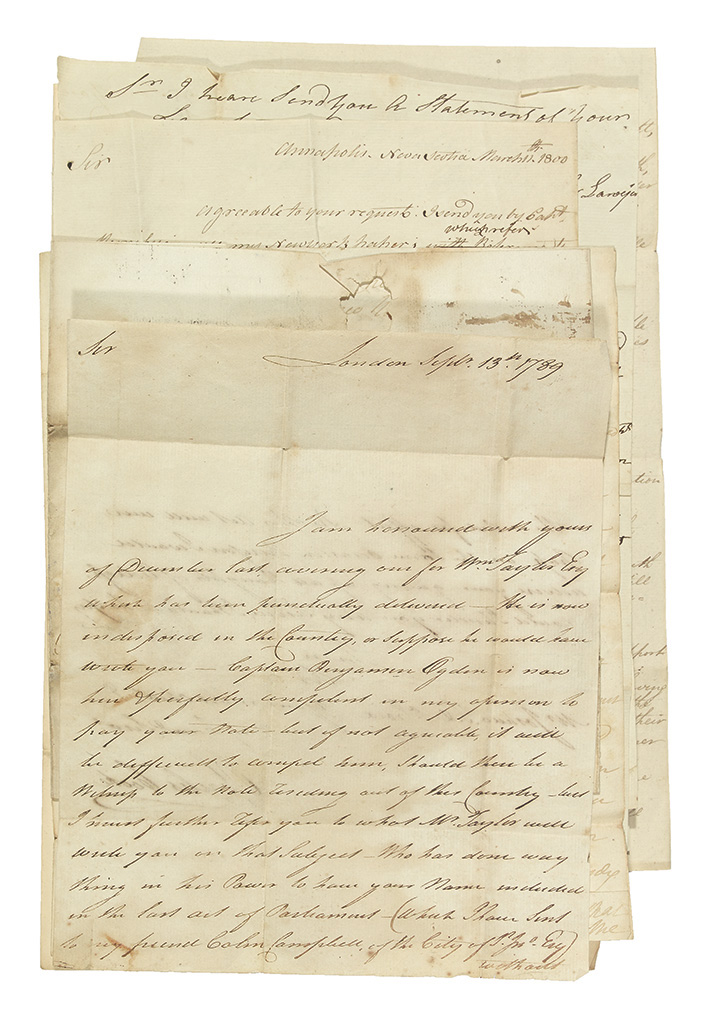 Sr. I heare Send You A Statement of Your
Lawyer
Annapolis. Nova Scotia March 11th. 1800
Sir
agreeable to your request. I send you by Capt.
which refer
Newyork
Sir
London Sepbr. 13th. 1789
I am honoured with yours
of December last covering one for Wm. Taylor Esq
which has been punctually delivered — He is now
indisposed in the Country, or suppose he would have
wrote you — Captain Benjamin Ogden is now
here & perfectly competent in my opinion to
pay your Note — but if not agreable, it will
be difficult to compel him, Should there be a
Witness to the Note residing out of this Country — but
I must further refer you to what Mr. Taylor will
write you on that Subject — Who has done every
thing in his Power to have your Name included
in the last act of Parliament — (which I have Sent
to my friend Colin Campbell, of the City of St. Jno. Esq)
without